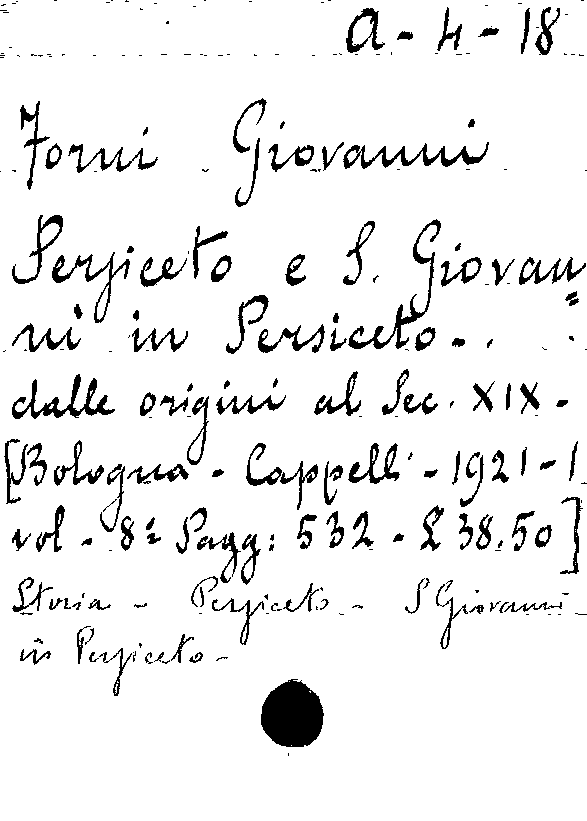 A - 4 - 18
Forni Giovanni
Persiceto e S. Giovan=
ni in Persiceto -
dalle origini al Sec. XIX -
[Bologna - Cappelli - 1921 - 1
vol - 8º Pagg: 532 - £ 38.50]
Storia - Persiceto - S Giovanni
in Persiceto -